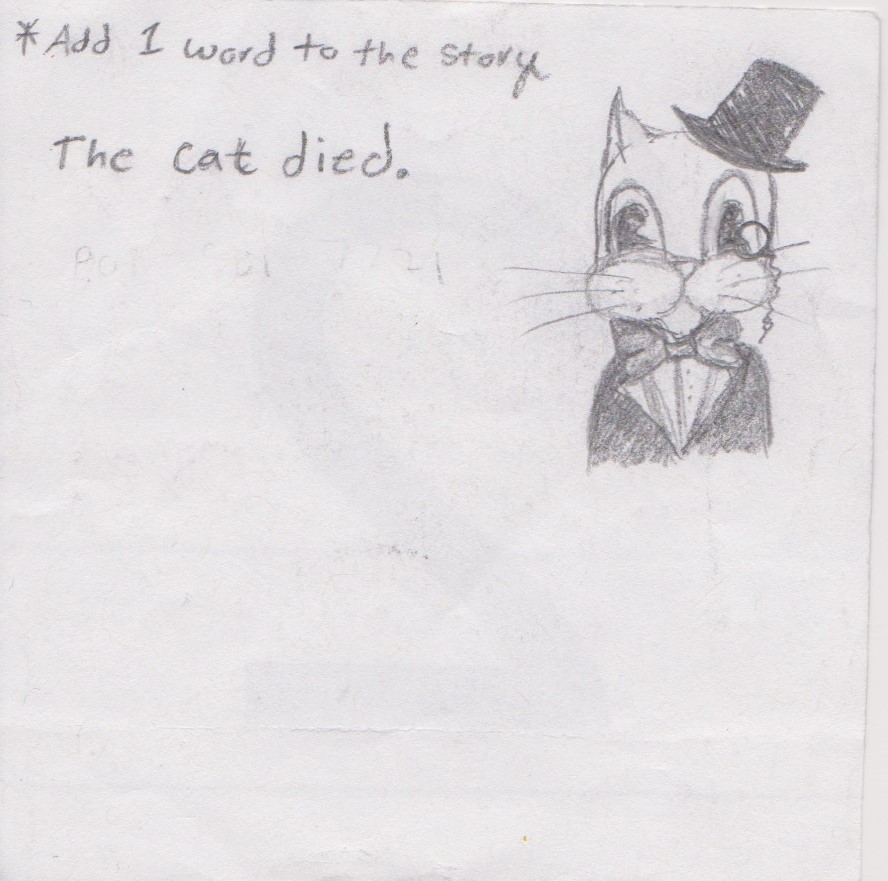 *Add 1 word to the story
The cat died.